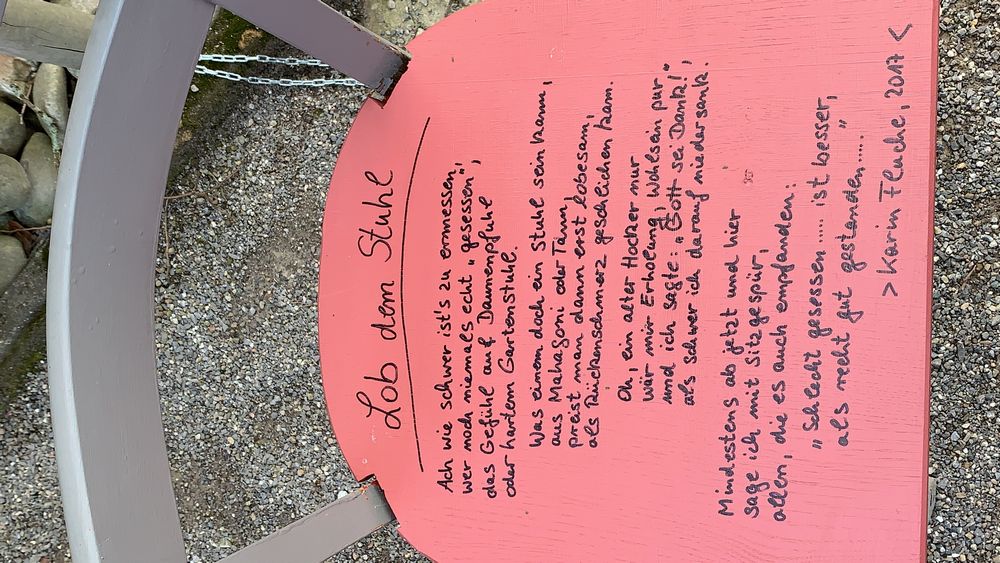 Lob dem Stuhle
Ach wie schwer ist's zu ermessen,
wer noch niemals echt „gesessen“,
das Gefühle auf Daunenpfuhle
oder hartem Gartenstuhle.
Was einem doch ein Stuhl sein kann,
aus Mahagoni oder Tann,
preist man dann erst lobesam,
als Rückenschmerz geschlichen kam.
Oh, ein alter Hocker nur
wär mir Erholung, Wohlsein pur
und ich sagte: „Gott sei Dank!“,
als schwer ich darauf niedersank.
Mindestens ab jetzt und hier
sage ich mit Sitzgespür,
allen, die es auch empfanden:
„Schlecht gesessen ..... ist besser,
als recht gut gestanden.....“
> Karin Flache, 2017 <